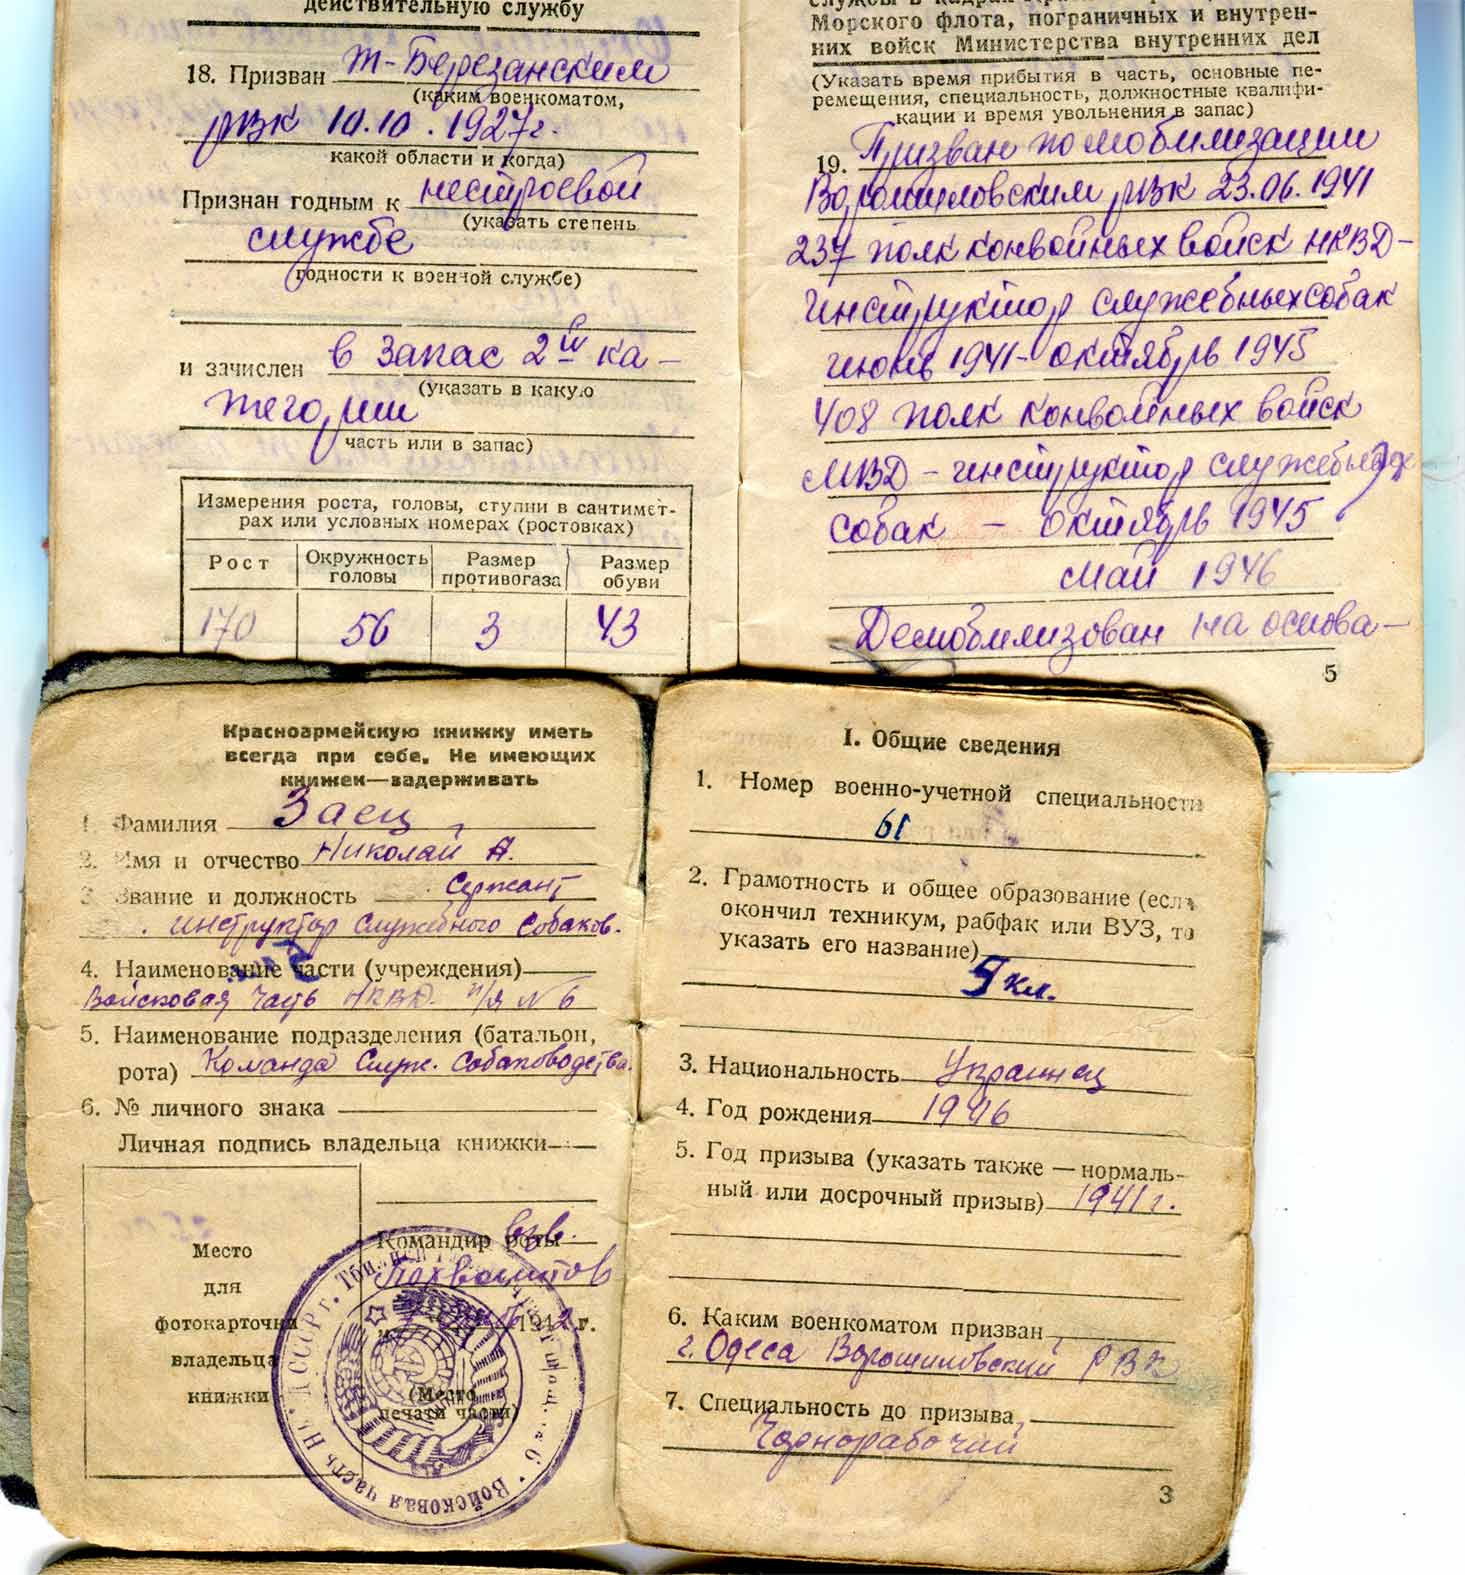 действительную службу
18. Призван Т-Березанским
(каким военкоматом,
рвк 10.10.1927г.
какой области и когда)
Признан годным к нестроевой
(указать степень
службе
годности к военной службе)
и зачислен в запас 2й ка-
(указать в какую
тегории
часть или в запас)
Измерения роста, головы, ступни в сантимет-
рах или условных номерах (ростовках)
Рост Окружность головы Размер противогаза Размер обуви
170 56 3 43
Морского флота, пограничных и внутрен-
них войск Министерства внутренних дел
(Указать время прибытия в часть, основные пе-
ремещения, специальность, должностные квалифи-
кации и время увольнения в запас)
19. Призван по мобилизации
Ворошиловским рвк 23.06.1941
237 полк конвойных войск НКВД-
инструктор служебных собак
июнь 1941- октябрь 1945
408 полк конвойных войск
МВД - инструктор служебных
собак - октябрь 1945
май 1946
Демобилизован на основа-
5
Красноармейскую книжку иметь
всегда при себе. Не имеющих
книжек—задерживать
1. Фамилия Заец
2. Имя и отчество Николай А.
3. Звание и должность Сержант
инструктор служебного собаков.
4. Наименование части (учреждения)
Войсковая часть НКВД п/я № 6
5. Наименование подразделения (батальон,
рота) Команда Служ. Собаководства.
6. № личного знака
Личная подпись владельца книжки
Место
для
фотокарточки
владельца
книжки
Командир роты взв.
1942 г.
(Место
печати части)
Войсковая часть
I. Общие сведения
1. Номер военно-учетной специальности
61
2. Грамотность и общее образование (если
окончил техникум, рабфак или ВУЗ, то
указать его название)
5 кл.
3. Национальность Украинец
4. Год рождения
5. Год призыва (указать также — нормаль-
ный или досрочный призыв) 1941 г.
6. Каким военкоматом призван
г. Одеса Ворошиловский РВК
7. Специальность до призыва
Чернорабочий
3